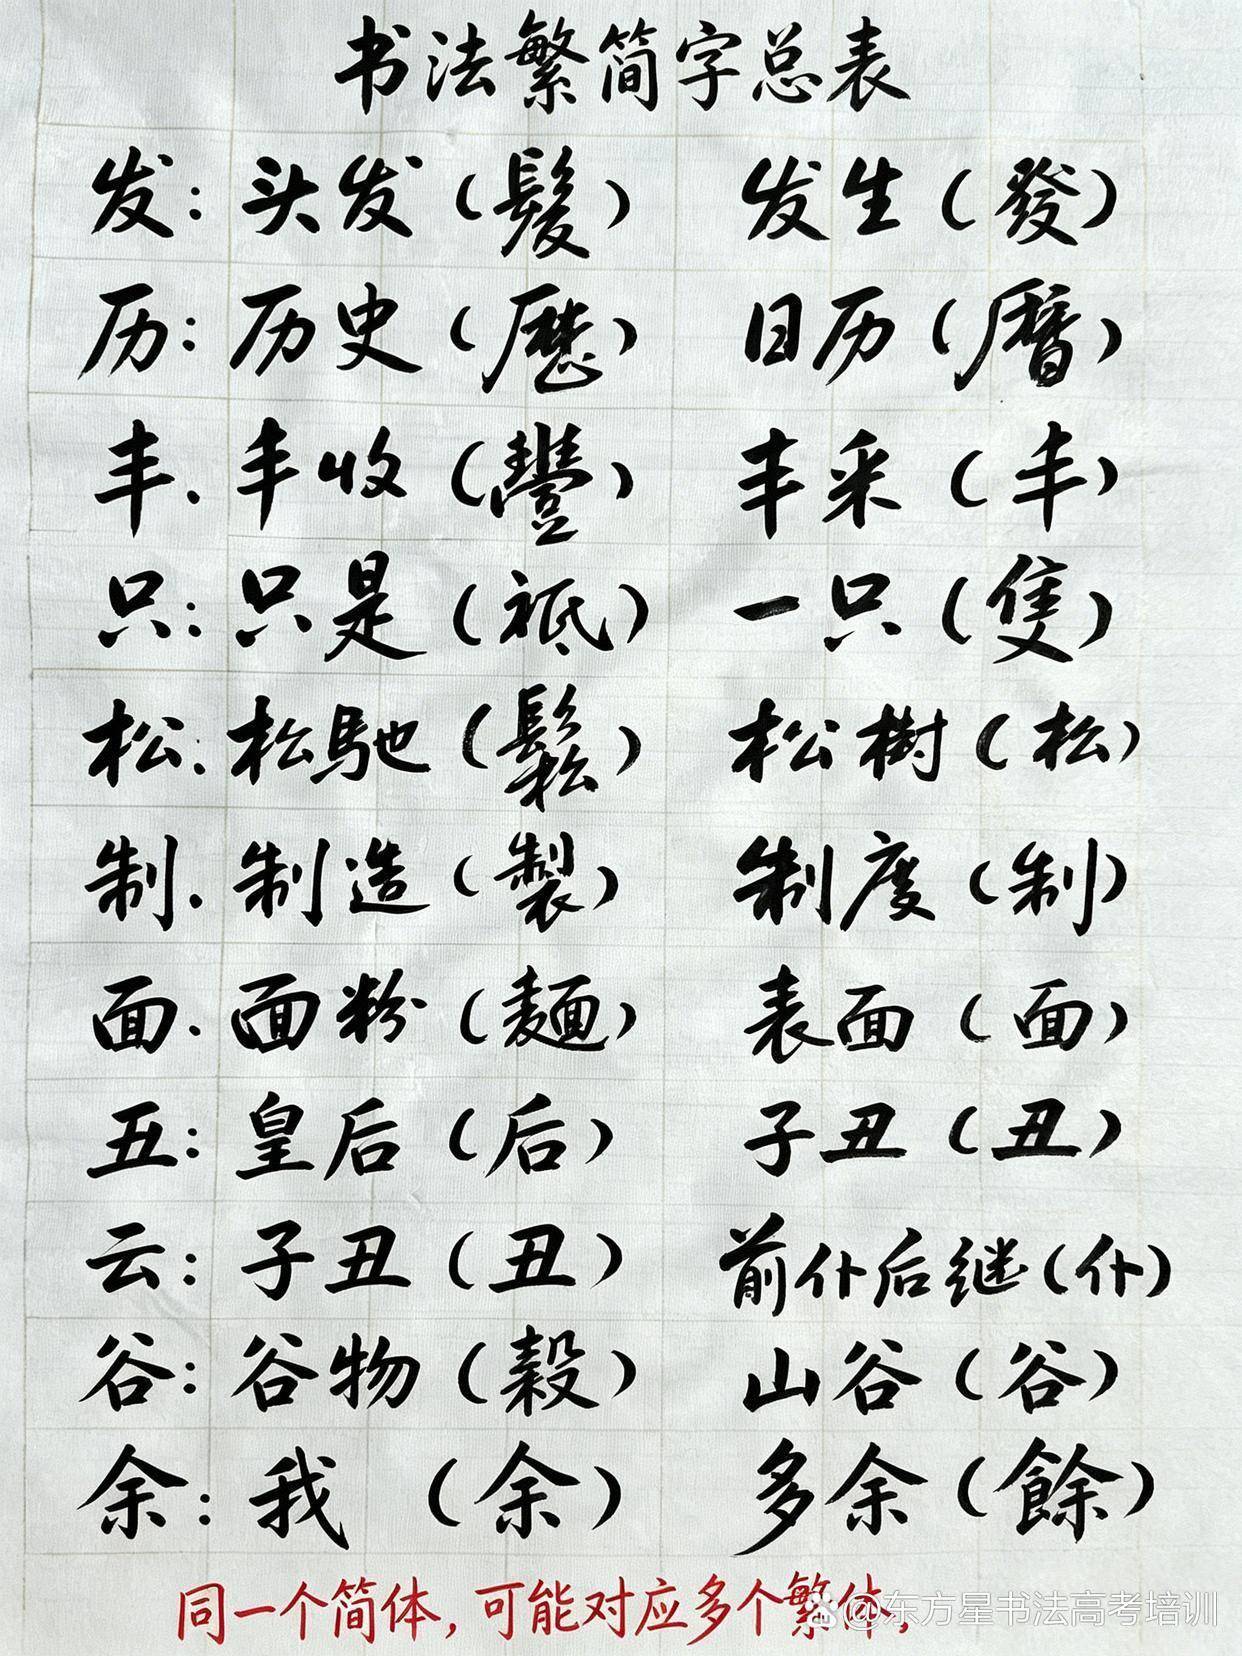 书法繁简字总表
发：头发（髮） 发生（發）
历：历史（歷） 日历（曆）
丰．丰收（豐） 丰采（丰）
只：只是（祇） 一只（隻）
松．松馳（鬆） 松樹（松）
制．制造（製） 制度（制）
面．面粉（麵） 表面（面）
五：皇后（后） 子丑（丑）
云：子丑（丑） 前仆后继（仆）
谷：谷物（穀） 山谷（谷）
余：我（余） 多余（餘）
同一个简体，可能对应多个繁体，
@东方星书法高考培训